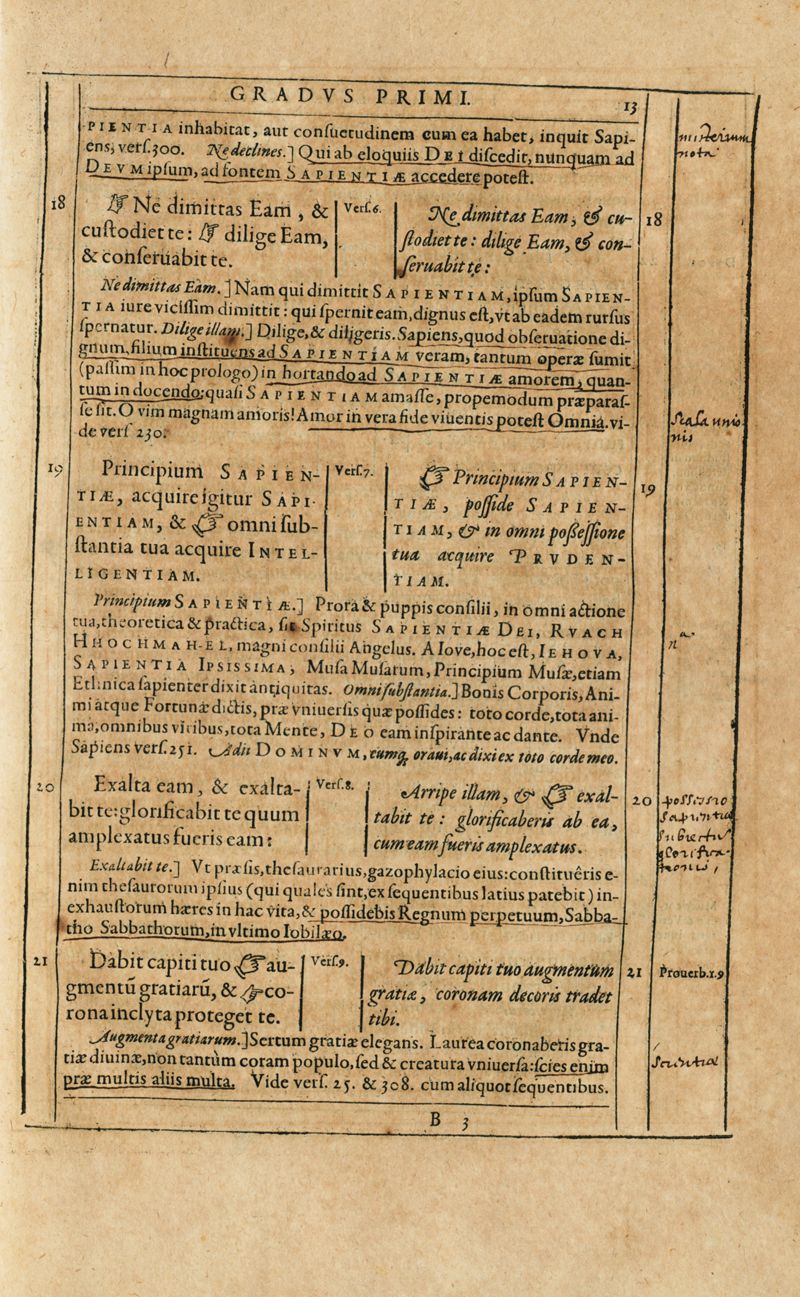 GRADVS PRIMI.
13
PIENTIA inhabitat, aut conſuetudinem cum ea habet, inquit Sapi-
ens, verſ. 300. Ne declines.] Qui ab eloquiis DEI diſcedit, nunquam ad
DEVM ipſum, ad fontem SAPIENTIÆ accedere poteſt.
18
Ne dimittas Eam, &
cuſtodiet te: dilige Eam,
& conſeruabit te.
Verſ. 6.
Ne dimittas Eam, & cu-
ſtodiet te: dilige Eam, & con-
ſeruabit te:
18
Ne dimittas Eam.] Nam qui dimittit SAPIENTIAM, ipſum SAPIEN-
TIA iure viciſſim dimittit: qui ſpernit eam, dignus eſt, vt ab eadem rurſus
ſpernatur. Dilige illam.] Dilige, & diligeris. Sapiens, quod obſeruatione di-
gnum, filium inſtituens ad SAPIENTIAM veram, tantum operæ ſumit
(paſſim in hoc prologo) in hortando ad SAPIENTIÆ amorem, quan-
tum in docendo: quaſi SAPIENTIAM amaſſe, propemodum præparaſ-
ſe ſit. O vim magnam amoris! Amor in vera fide viuentis poteſt Omnia. vi-
de verſ 230.
19
Principium SAPIEN-
TIÆ, acquire igitur SAPI-
ENTIAM, & omni ſub-
ſtantia tua acquire INTEL-
LIGENTIAM.
Verſ. 7.
Principium SAPIEN-
TIÆ, poſſide SAPIEN-
TIAM, & in omni poßeſſione
tua acquire PRVDEN-
TIAM.
19
Principium SAPIENTIÆ.] Prora & puppis conſilii, in omni actione
tua, theoretica & practica, ſit Spiritus SAPIENTIÆ DEI, RVACH
HHOCHMAH-EL, magni conſilii Angelus. A Ioue, hoc eſt, IEHOVA,
SAPIENTIA IPSISSIMA, Muſa Muſarum, Principium Muſæ, etiam
Ethnica ſapienter dixit antiquitas. Omni ſubſtantia.] Bonis Corporis, Ani-
mi atque Fortunæ dictis, præ vniuerſis quæ poſſides: toto corde, tota ani-
ma, omnibus viribus, tota Mente, DEO eam inſpirante ac dante. Vnde
Sapiens verſ. 251. Adii DOMINVM, eumq́; oraui, ac dixi ex toto corde meo.
20
Exalta eam, & exalta-
bit te: glorificabit te quum
amplexatus fueris eam:
Verſ. 8.
Arripe illam, & exal-
tabit te: glorificaberis ab ea,
cum eam fueris amplexatus.
20
Exaltabit te.] Vt præſis, theſaurarius, gazophylacio eius: conſtituêris e-
nim theſaurorum ipſius (qui quales ſint, ex ſequentibus latius patebit) in-
exhauſtorum hæres in hac vita, & poſſidebis Regnum perpetuum, Sabba-
tho Sabbathorum, in vltimo Iobilæo.
21
Dabit capiti tuo au-
gmentũ gratiarũ, & co-
rona inclyta proteget te.
Verſ. 9.
Dabit capiti tuo augmentum
gratiæ, coronam decoris tradet
tibi.
21
Prouerb. 1. 9
Augmenta gratiarum.] Sertum gratiæ elegans. Laurea coronaberis gra-
tiæ diuinæ, non tantùm coram populo, ſed & creatura vniuerſa: ſcies enim
præ multis aliis multa. Vide verſ. 25. & 308. cum aliquot ſequentibus.
B 3